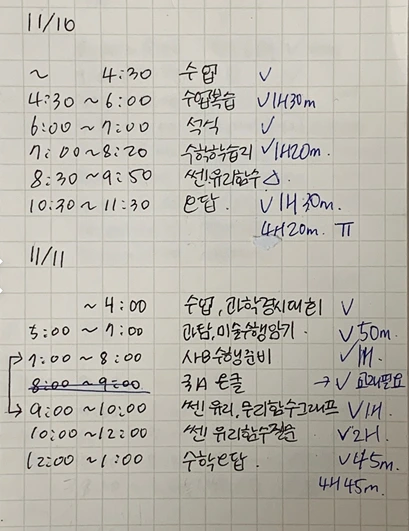 11/10
~ 4:30 수업 ✓
4:30 ~ 6:00 수업복습 ✓1H30m
6:00 ~ 7:00 석식 ✓
7:00~8:20 수학학습지 ✓1H20m.
8:30 ~ 9:50 쎈.유리함수 △
10:30 ~ 11:30 e답. ✓1H:30m.
4H20m. π
11/11
~ 4:00 수업, 과학경시대회 ✓
5:00 ~ 7:00 과탐,미술수행암기 ✓50m.
7:00 ~ 8:00 사B수행준비 ✓1H.
8:00 ~ 9:00 국A → ✓
9:00~10:00 쎈 유리,무리함수그래프 ✓1H
10:00 ~12:00 쎈 유리함수 ✓2H.
12:00 ~ 1:00 수학e답. ✓45m.
4H45m.